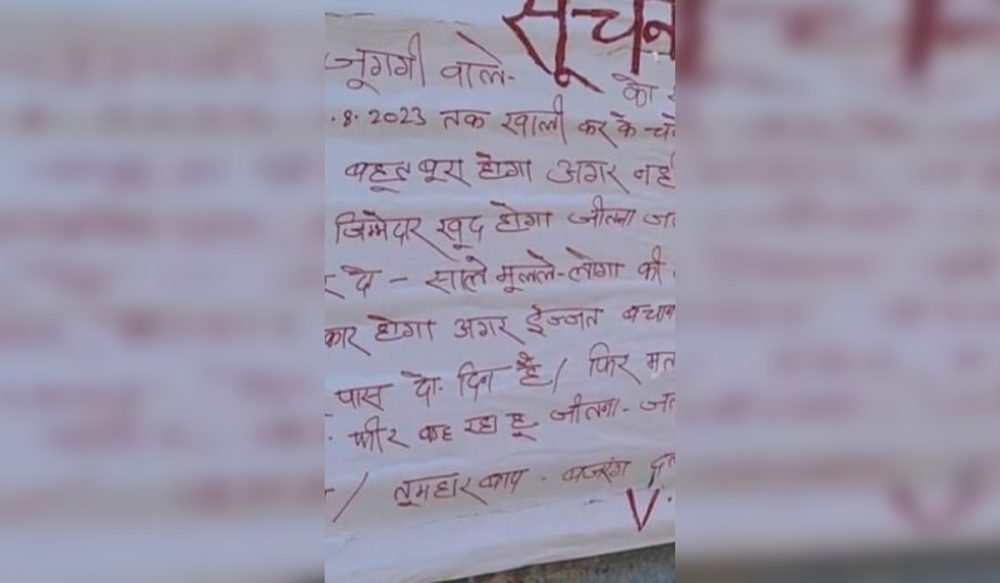 सूचन
जूगगी वाले-
को
.8.2023 तक खाली कर के च
बहूत बूरा होगा अगर नह
जिम्मेदार खूद होगा जीतना ज
दे - साले मूलले-लोगा की
कार होगा अगर ईज्जत बचा
पास दो दिन है/ फिर मत
फीर कह रहा हू जीतना- ज
/ तूमहार बाप . बजरंग द
V.